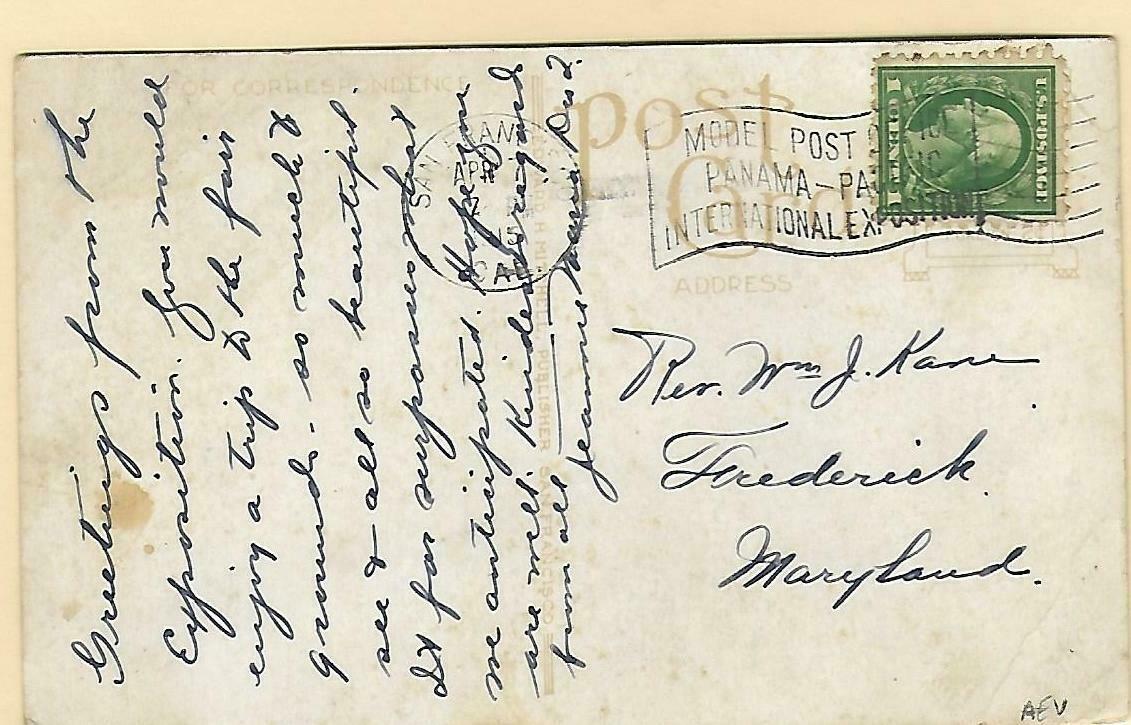 FOR CORRESPONDENCE
Greetings from the
Exposition. You would
enjoy a trip to the fair
grounds - so much to
see & all so beautiful.
It far surpasses what
we anticipated. Hope you
are well. Kindest regards
from all
Jeanne
post
Card
ADDRESS
SAN FRAN
APR
CAL.
MODEL POST
PANAMA-PA
INTERNATIONAL EXPOSITION
U.S. POSTAGE
1 CENT 1
Rev. Wm J. Kane
Frederick
Maryland.
MITCHELL, PUBLISHER, SAN FRANCISCO
AEV